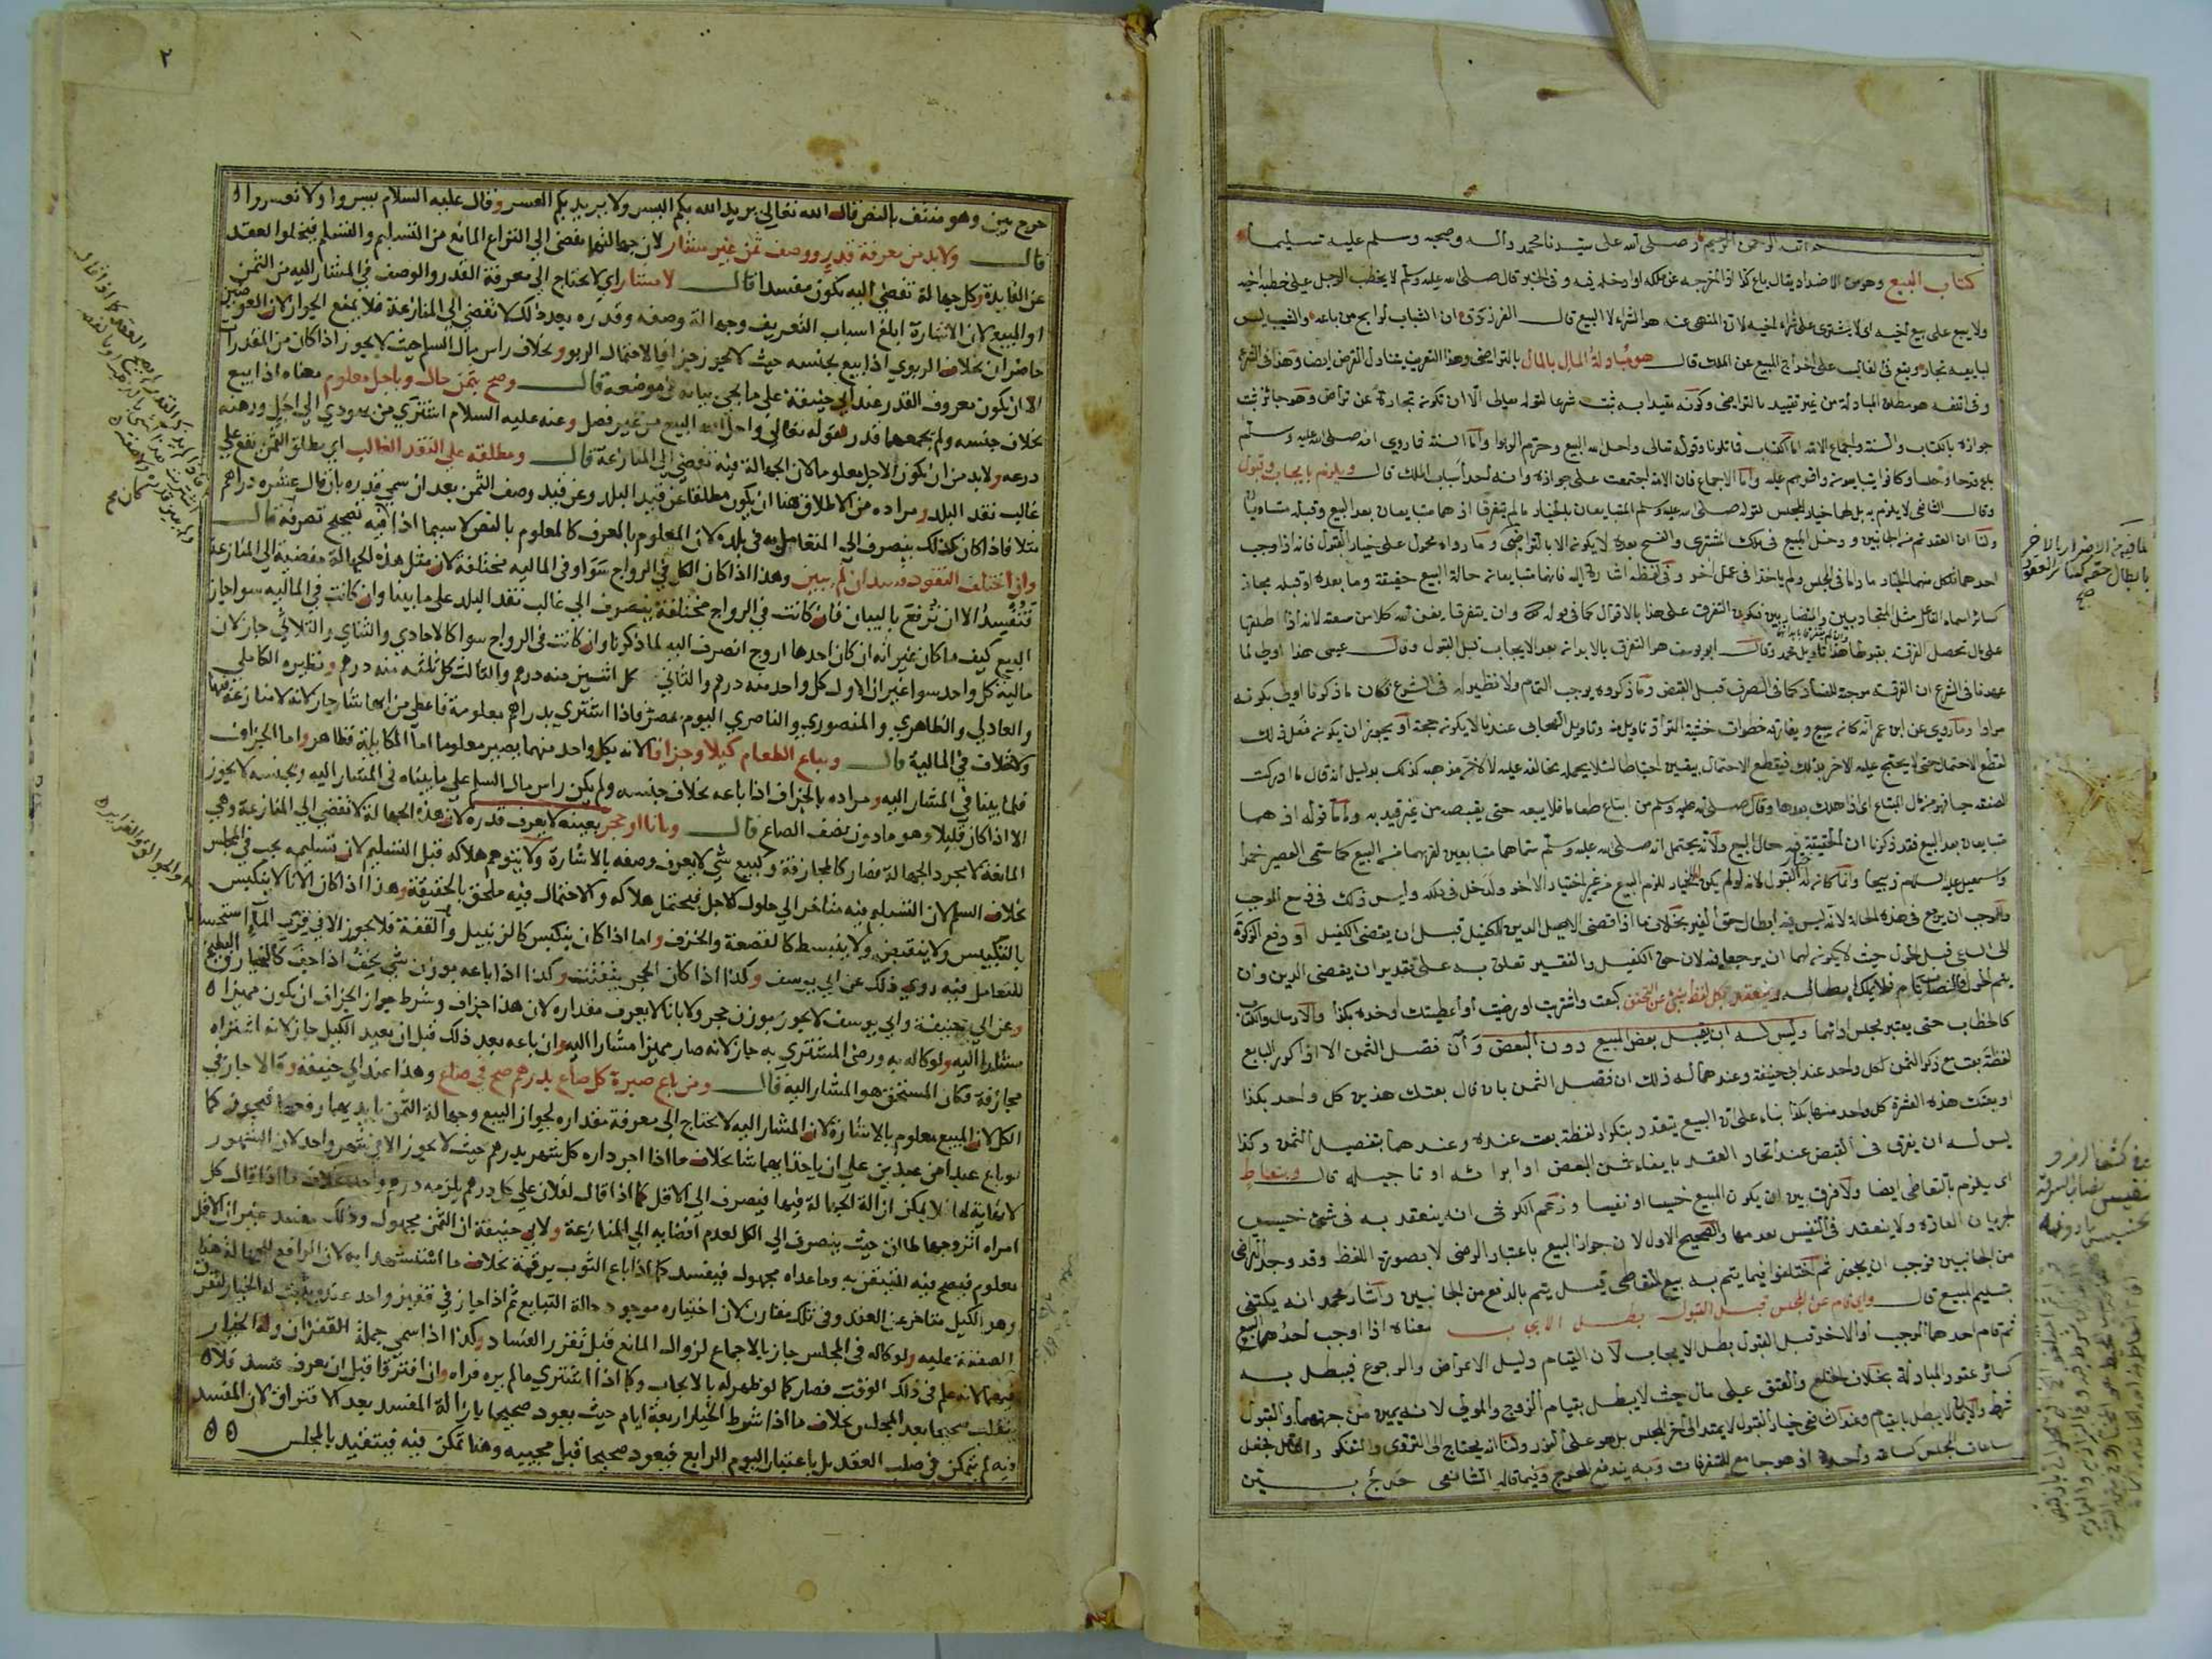 بسم الله الرحمن الرحيم وصلى الله على سيدنا محمد وآله وصحبه وسلم عليه تسليما
كتاب البيع وهو من الاضداد يقال باع كذا اذا اخرجه عن ملكه او ادخله فيه وفي الخبر قال صلى الله عليه وسلم لا يخطب الرجل على خطبة اخيه
ولا يبيع على بيع اخيه اي لا يشتري على شراء اخيه لان المنهي عنه هو الشراء لا البيع قال الفرزدق ان الشباب لرابح من باعه والشيب ليس
لبايعيه تجار ويقع في الغالب على اخراج المبيع عن الملك قال هو مبادلة المال بالمال بالتراضي وهذا التعريف يتناول القرض ايضا وهذا في الشرع
وفي اللغة هو مطلق المبادلة من غير تقييد بالتراضي وكونه مقيدا به ثبت شرعا لقوله تعالى الا ان تكون تجارة عن تراض وهو جائز ثبت
جوازه بالكتاب والسنة واجماع الامة اما الكتاب فما تلونا وقوله تعالى واحل الله البيع وحرم الربوا واما السنة فما روي انه صلى الله عليه وسلم
باع قدحا وحلسا وكانوا يتبايعون فاقرهم عليه واما الاجماع فان الامة اجتمعت على جوازه وانه احد اسباب الملك قال ويلزم بايجاب وقبول
وقال الشافعي لا يلزم به بل لهما خيار المجلس لقوله صلى الله عليه وسلم المتبايعان بالخيار ما لم يتفرقا اذ هما متبايعان بعد البيع وقبله متساومان
ولنا ان العقد تم من الجانبين ودخل المبيع في ملك المشتري والفسخ بعده لا يكون الا بالتراضي وما رواه محمول على خيار القبول فانه اذا اوجب
احدهما فلكل منهما الخيار ما داما في المجلس ولم ياخذا في عمل اخر وفي لفظه اشارة اليه فانهما متبايعان حالة البيع حقيقة وما بعده او قبله مجاز
كسائر اسماء الفاعل مثل المتجاذبين والمتضاربين فيكون التفرق على هذا بالاقوال كما في قوله تعالى وان يتفرقا يغن الله كلا من سعته لانه اذا طلقها
على مال تحصل الفرقة بقبولها هذا تاويل محمد وقال ابو يوسف هو التفرق بالابدان بعد الايجاب قبل القبول وقال عيسى هذا اولى لما
عهدنا في الشرع ان الفرقة موجبة للفساد كما في الصرف قبل القبض وما ذكروه يوجب التمام ولا نظير له في الشرع فكان ما ذكرنا اولى بكونه
مرادا وما روي عن ابن عمر انه كان يبيع ويفارقه خطوات خشية التراد تاويل منه وتاويل الصحابي عندنا لا يكون حجة او يجوز ان يكون فعل ذلك
لقطع الاحتمال حتى لا يحتج عليه الاخر بذلك فيقطع الاحتمال بيقين احتياطا لئلا يحمله مخالفه عليه لا لان مذهبه كذلك بدليل انه قال ما ادركت
الصفقة حيا فهو من مال المبتاع اي اذا هلك بعدها وقال صلى الله عليه وسلم من ابتاع طعاما فلا يبعه حتى يقبضه من غير قيد به واما قوله اذ هما
متبايعان بعد البيع فقد ذكرنا ان الحقيقة فيه حال البيع ولانه يحتمل انه صلى الله عليه وسلم سماهما متبايعين لقربهما من البيع كما سمي العصير خمرا
واسمعيل عليه السلام ذبيحا وانما كان له القبول لانه لو لم يكن الخيار للزم البيع من غير اختيار الاخر ولدخل في ملكه وليس ذلك في وسع الموجب
وللموجب ان يرجع في هذه الحالة لانه ليس فيه ابطال حق الغير بخلاف ما اذا قضى الاصيل الدين الكفيل قبل ان يقضي الكفيل او دفع الزكوة
الى الساعي قبل الحول حيث لا يكون لهما ان يرجعا فيه لان حق الكفيل والفقير تعلق به على تقدير ان يقضي الدين وان
يتم الحول والنصاب تام فلا يملك ابطاله وينعقد بكل لفظ ينبئ عن التحقيق كبعت واشتريت او رضيت او اعطيتك او خذه بكذا والارسال والكتاب
كالخطاب حتى يعتبر مجلس ادائهما وليس له ان يقبل بعض المبيع دون البعض وان فصل الثمن الا اذا كرر البايع
لفظة بعت مع ذكر الثمن لكل واحد عند ابي حنيفة وعندهما له ذلك ان فصل الثمن بان قال بعتك هذين كل واحد بكذا
او بعتك هذه العشرة كل واحد منها بكذا بناء على ان البيع يتعدد بتكرار لفظة بعت عنده وعندهما بتفصيل الثمن وكذا
ليس له ان يفرق في القبض عند اتحاد العقد بايفاء ثمن البعض او ابرائه او تاجيله قال وبتعاط
اي يلزم بالتعاطي ايضا ولا فرق بين ان يكون المبيع خسيسا او نفيسا وزعم الكرخي انه ينعقد به في شئ خسيس
لجريان العادة ولا ينعقد في النفيس لعدمها والصحيح الاول لان جواز البيع باعتبار الرضى لا بصورة اللفظ وقد وجد التراضي
من الجانبين فوجب ان يجوز ثم اختلفوا فيما يتم به بيع التعاطي قيل يتم بالدفع من الجانبين واشار محمد انه يكتفى
بتسليم المبيع قال واي قام عن المجلس قبل القبول بطل الايجاب معناه اذا اوجب احدهما البيع
ثم قام احدهما الموجب او الاخر قبل القبول بطل الايجاب لان القيام دليل الاعراض والرجوع فيبطل به
كسائر عقود المبادلة بخلاف الخلع والعتق على مال حيث لا يبطل بقيام الزوج والمولى لانه يمين من جهتهما والقبول
شرط والايمان لا يبطل بالقيام وعند الشافعي خيار القبول لا يمتد الى آخر المجلس بل هو على الفور ولنا انه يحتاج الى التروي والتفكر والتأمل فجعل
ساعات المجلس كساعة واحدة اذ هو جامع للمتفرقات وبه يندفع الحرج وفيما قاله الشافعي حرج بين
٢
حرج بين وهو منتف بالنص قال الله تعالى يريد الله بكم اليسر ولا يريد بكم العسر وقال عليه السلام يسروا ولا تعسروا
قال ولا بد من معرفة قدر ووصف ثمن غير مشار لان جهالتهما تفضي الى النزاع المانع من التسليم والتسلم فيخلوا العقد
عن الفايدة وكل جهالة تفضي اليه يكون مفسدا قال لا مشار اي لا يحتاج الى معرفة القدر والوصف في المشار اليه من الثمن
او المبيع لان الاشارة ابلغ اسباب التعريف وجهالة وصفه وقدره بعد ذلك لا تفضي الى المنازعة فلا يمنع الجواز لان العوضين
حاضران بخلاف الربوي اذا بيع بجنسه حيث لا يجوز جزافا لاحتمال الربو وبخلاف راس مال السلم حيث لا يجوز اذا كان من المقدرات
الا ان يكون معروف القدر عند ابي حنيفة على ما يجئ بيانه في موضعه قال وصح بثمن حال وباجل معلوم معناه اذا بيع
بخلاف جنسه ولم يجمعهما قدر لقوله تعالى واحل الله البيع من غير فصل وعنه عليه السلام اشترى من يهودي الى اجل ورهنه
درعه ولا بد من ان يكون الاجل معلوما لان الجهالة فيه تفضي الى المنازعة قال ومطلقه على النقد الغالب اي مطلق الثمن يقع على
غالب نقد البلد ومراده من الاطلاق هنا ان يكون مطلقا عن قيد البلد وعن قيد وصف الثمن بعد ان سمى قدره بان قال عشره دراهم
مثلا فاذا كان كذلك ينصرف الى المتعامل به في بلده لان المعلوم بالعرف كالمعلوم بالنص لا سيما اذا فيه تصحيح تصرفه قال
وان اختلف النقود فسد ان لم يبين وهذا اذا كان الكل في الرواج سواء وفي الماليه مختلفة لان مثل هذه الجهالة مفضية الى المنازعة
فتفسده الا ان ترفع بالبيان فان كانت في الرواج مختلفة ينصرف الى غالب نقد البلد على ما بينا وان كانت في الماليه سوا جاز
البيع كيف ما كان غير انه ان كان احدها اروج انصرف اليه لما ذكرنا وان كانت في الرواج سوا كالاحادي والثناي والثلاثي جاز لان
مالية كل واحد سوا غير ان الاول كل واحد منه درهم والثاني كل اثنين منه درهم والثالث كل ثلثه منه درهم ونظيره الكاملي
والعادلي والظاهري والمنصوري والناصري اليوم بمصر فاذا اشتري بدراهم معلومة فاعطى من ايها شاء جاز لانه لا منازعة فيها
ولاختلاف في المالية قال ويباع الطعام كيلا وجزافا لانه بكل واحد منهما يصير معلوما اما المكايلة فظاهر واما الجزاف
فلما بينا في المشار اليه ومراده بالجزاف اذا باعه بخلاف جنسه ولم يكن راس مال السلم على ما بيناه في المشار اليه وبجنسه لا يجوز
الا اذا كان قليلا وهو ما دون نصف الصاع قال وباناء او حجر بعينه لا يعرف قدره لان هذه الجهالة لا تفضي الى المنازعة وهي
المانعة لا مجرد الجهالة فصار كالمجازفة وكبيع شئ لا يعرف وصفه بالاشارة ولا يتوهم هلاكه قبل التسليم لان تسليمه يجب في المجلس
بخلاف السلم لان التسليم فيه متاخر الى حلول الاجل فيحتمل هلاكه والاحتمال فيه ملحق بالحقيقة وهذا اذا كان الانا لا ينكبس
بالتكبيس ولا ينقبض ولا ينبسط كالقصعة والخزف واما اذا كان ينكبس كالزنبيل والقفة فلا يجوز الا في قرب الماء استحسانا
للتعامل فيه روي ذلك عن ابي يوسف وكذا اذا كان الحجر يتفتت وكذا اذا باعه بوزن شئ يخف اذا جف كالخيار والبطيخ
وعن ابي حنيفة وابي يوسف لا يجوز بوزن حجر ولا بانا لا يعرف مقداره لان هذا جزاف وشرط جواز الجزاف ان يكون مميزا
مشارا اليه ولو كاله به ورضي المشتري به جاز لانه صار مميزا مشارا اليه وان باعه بعد ذلك قبل ان يعيد الكيل جاز لانه اشتراه
مجازفة فكان المستحق هو المشار اليه قال ومن باع صبرة كل صاع بدرهم صح في صاع وهذا عند ابي حنيفه وقالا جاز في
الكل لان المبيع معلوم بالاشارة لان المشار اليه لا يحتاج الى معرفة مقداره لجواز البيع وجهالة الثمن بايديهما رفعها فيجوز كما
لو باع عبدا من عبدين على ان ياخذ ايهما شا بخلاف ما اذا اجر داره كل شهر بدرهم حيث لا يجوز الا في شهر واحد لان الشهور
لا نهاية لها فلا يمكن ازالة الجهالة فيها فيصرف الى الاقل كما اذا قال لفلان علي كل درهم يلزمه درهم واحد بخلاف ما اذا قال كل
امراه اتزوجها طالق حيث ينصرف الى الكل لعدم افضائه الى المنازعة ولابي حنيفة ان الثمن مجهول وذلك مفسد غير ان الاقل
معلوم فيصح فيه للتيقن به وما عداه مجهول فيفسد كما اذا باع الثوب برقمه بخلاف ما استشهدا به لان الرافع للجهالة هنا
وهو الكيل متاخر عن العقد وفي تلك مقارن لان اختياره موجود حالة التبايع ثم اذا جاز في قفيز واحد عنده يثبت له الخيار لتفرق
الصفقة عليه ولو كاله في المجلس جاز بالاجماع لزوال المانع قبل تقرر الفساد وكذا اذا سمى جملة القفزان وله الخيار
فيهما لانه علم في ذلك الوقت فصار كما لو ظهر له بالايجاب وكما اذا اشترى ما لم يره فراه وان افترقا قبل ان يعرف فسد فلا
ينقلب صحيحا بعد المجلس بخلاف ما اذا شرط الخيار اربعة ايام حيث يعود صحيحا بازالة المفسد بعد الافتراق لان المفسد
فيه لم يتمكن في صلب العقد بل باعتبار اليوم الرابع فيعود صحيحا قبل مجيئه وهنا تمكن فيه فيتقيد بالمجلس